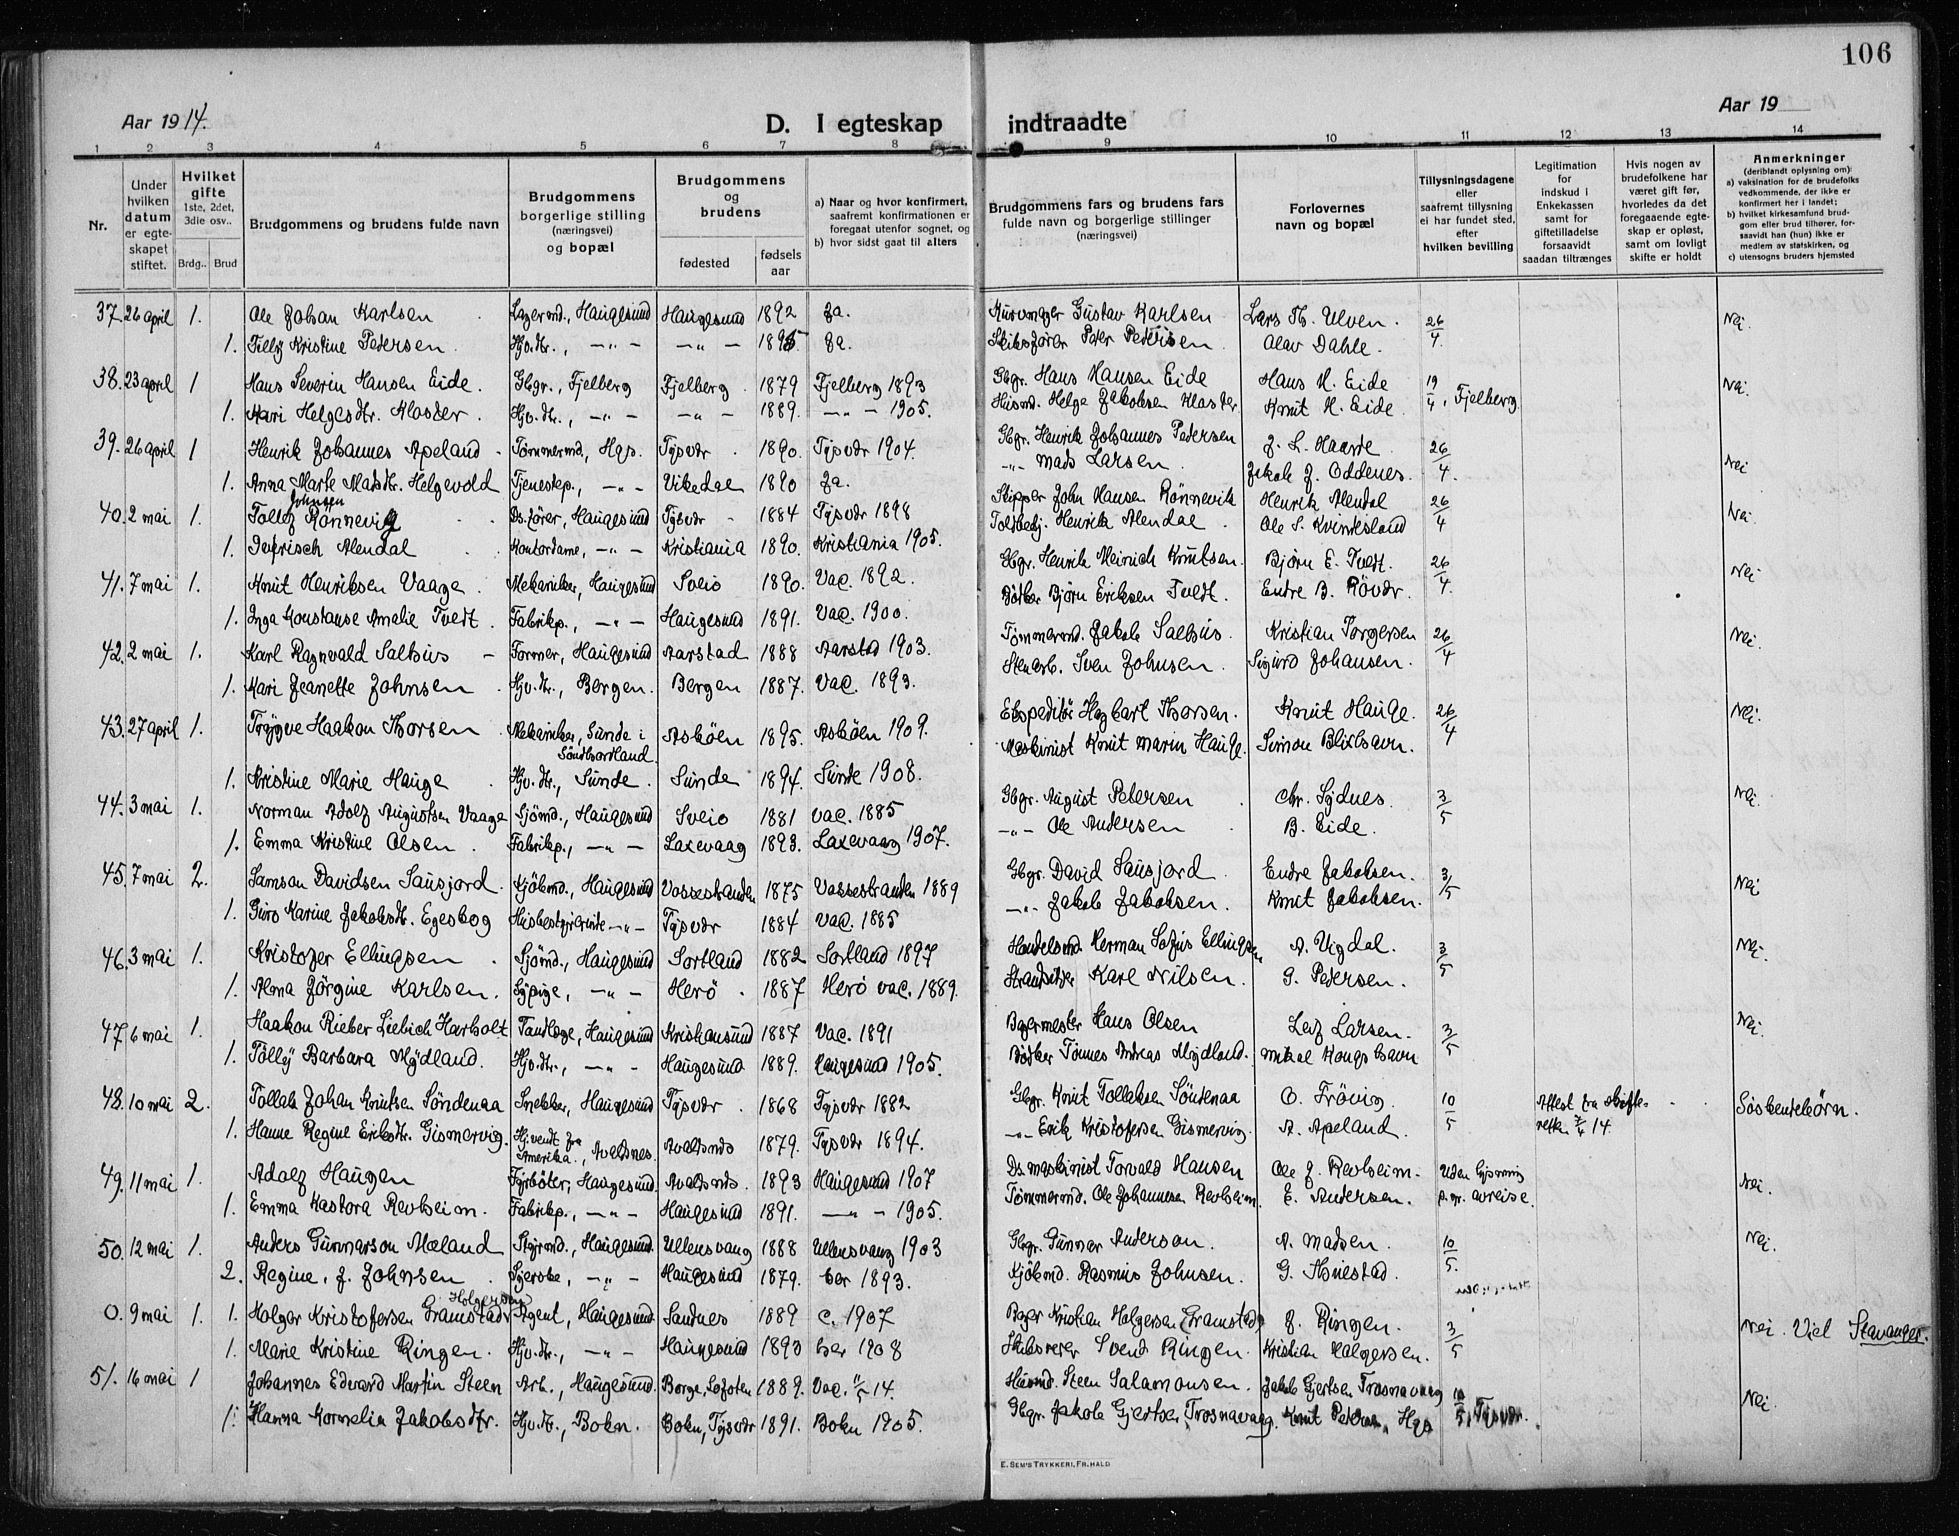 106
Aar 1914.
D. I egteskap indtraadte
Aar 19
1 2 3 4 5 6 7 8 9 10 11 12 13 14
Nr.
Under hvilken datum er egteskapet stiftet.
Hvilket gifte 1ste, 2det, 3die osv..
Brdg.. Brud
Brudgommens og brudens fulde navn
Brudgommens borgerlige stilling (næringsvei) og bopæl
Brudgommens og brudens
fødested
fødsels aar
a) Naar og hvor konfirmert, saafremt konfirmationen er foregaat utenfor sognet, og
b) hvor sidst gaat til alters
Brudgommens fars og brudens fars fulde navn og borgerlige stillinger (næringsvei)
Forlovernes navn og bopæl
Tillysningsdagene eller saafremt tillysning ei har fundet sted, efter hvilken bevilling
Legitimation for indskud i Enkekassen samt for giftetilladelse forsaavidt saadan tiltrænges
Hvis nogen av brudefolkene har været gift før, hvorledes da det foregaaende egteskap er opløst, samt om lovligt skifte er holdt
Anmerkninger (deriblandt oplysning om):
a) vaksination for de brudefolks vedkommende, der ikke er konfirmert her i landet;
b) hvilket kirkesamfund brudgom eller brud tilhører, forsaavidt han (hun) ikke er medlem av statskirken, og
c) utensogns bruders hjemsted
37. 26 april 1. Ole Johan Karlsen Lagermd., Haugesund Haugesund 1892 Ja. Kurvmager Gustav Karlsen Lars Th. Ulven. 26/4 Nei
1. Tilly Kristine Pedersen. Hjv. dtr., -"- -"- 1895 Ja. Skibsfører Peder Pedersen Olav Dahle.
38. 23 april 1 Hans Severin Hansen Eide. Gbgr., Fjelberg Fjelberg 1879 Fjelberg 1893 Gbgr. Hans Hansen Eide Hans H. Eide 19/4, Fjelberg Nei
1. Kari Helgesdtr. Kloster. Hjv. dtr., -"- -"- 1889. -"- 1905. Husmd. Helge Jakobsen Kloster Knut H. Eide
39. 26 april 1 Henrik Johannes Apeland Tømmermd., Hgs. Tysvær 1890. Tysvær 1904. Gbgr. Henrik Johannes Pedersen J. L. Haarte 26/4 Nei
1. Anna Marte Madsdtr. Helgevold Tjenestep., -"- Vikedal 1890 Ja. -"- Mads Larsen Jakob J. Oddenes.
40. 2 mai 1. Tollef Johnsen Rønnevig Ds. fører, Haugesund Tysvær 1884 Tysvær 1898 Skipper John Hansen Rønnevik Henrik Alendal 26/4 Nei
1. Alendal Kontordame, -"- Kristiania 1890. Kristiania 1905. Toldbetj. Henrik Alendal. Ole S. Kvinnesland
41. 7 mai 1. Knut Henriksen Vaage. Mekaniker, Haugesund Sveio 1890. Vac. 1892. Gbgr. Henrik Meinich Knutsen Bjørn E. Tvedt. 26/4. Nei
1. Inga Konstanse Amalie Tvedt. Fabrikp., -"- Haugesund 1891. Vac. 1900. Bødker Bjørn Eriksen Tvedt. Endre B. Røvær.
42. 2 mai 1. Karl Ragnvald Salthus Former, Haugesund Aarstad 1888 Aarstad 1903. Tømmermd. Jakob Salthus. Kristian Torgersen 26/4 Nei.
1. Mari Jeanette Johnsen Hjv. dtr., Bergen. Bergen 1887. Vac. 1893. Stenarb. Sven Johnsen. Sigurd Johansen.
43. 27 april 1. Trygve Haakon Thorsen Mekaniker, Sunde i Søndhordland. Askøen 1895. Askøen 1909. Ekspeditør Hagbart Thorsen. Knut Hauge. 26/4 Nei.
1. Kristine Marie Hauge Hjv. dtr., Sunde. Sunde 1894. Sunde 1908. Maskinist Knut Marin Hauge. Simon Blikshavn.
44. 3 mai 1. Norman Adolf Augustsen Vaage Sjømd., Haugesund Sveio 1881 vac. 1885 Gbgr. August Petersen Chr. Lydnes. 3/5 Nei
1. Emma Kristine Olsen. Fabrikp., -"- Laxevaag 1893. Laxevaag 1907. -"- Ole Andersen B. Eide.
45. 7 mai 2. Samson Davidsen Sausjord. Kjøbmd., Haugesund Vossestranden 1875 Vossestranden 1889 Gbgr. David Sausjord. Endre Jakobsen. 3/5 Nei
1. Guro Karine Jakobsdtr. Egeskog Husbestyrerinde -"- Tysvær 1884 Vac. 1885 -"- Jakob Jakobsen. Knut Jakobsen.
46. 3 mai 1. Kristofer Ellingsen Sjømd., Haugesund Sortland 1882 Sortland 1897 Handelsmd. Herman Sofus Ellingsen A. Vigdal. 3/5 Nei.
1. Alma Jørgine Karlsen. Sypige, -"- Herø 1887 Herø vac. 1889. Strandsitter Karl Nilsen. G. Pedersen.
47. 6 mai 1. Haakon Rieber Liebich Harboe Tandlæge, Haugesund Kristiansund 1887 Vac. 1891 Bagermester Hans Olsen Leif Larsen. 3/5 Nei.
1. Tolly Barbara Mydland. Hjv. dtr., -"- Haugesund 1889. Haugesund 1905. Bødker Tønnes Andreas Mydland. Mikal Kongshavn
48. 10 mai 2. Tollak Johan Knutsen Søndenaa Snekker, Haugesund Tysvær 1868 Tysvær 1882 Gbgr. Knut Tollaksen Søndenaa O. Frøvig. 10/5 Attest fra skifteretten 7/4 14. Søskendebørn.
1. Hanne Regine Eriksdtr. Gismervig. Hj. vendt fra Amerika., Avaldsnes. Avaldsnes 1879. Tysvær 1894. -"- Erik Kristofersen Gismervig. A. Apeland.
49. 11 mai 1. Adolf Haugen Fyrbøter, Haugesund. Avaldsnes. 1893 Haugesund 1907 Ds. maskinist Torvald Hansen Ole J. Revheim. Uden lysning p. gr. avreise. Nei.
1. Emma Kastora Revheim. Fabrikp., -"- Haugesund 1891. -"- 1905. Tømmermd. Ole Johannesen Revheim. E. Andersen.
50. 12 mai 1. Anders Gunnarson Mæland Styrmd., Haugesund. Ullensvang 1888 Ullensvang 1903 Gbgr. Gunnar Anderson. A. Madsen. 10/5. Nei.
2. Regine. J. Johnsen Syerske, -"- Haugesund 1879. her 1893. Kjøbmd. Rasmus Johnsen. G. Thuestad.
0. 9 mai 1. 1. Holger Kristofersen Holgersen Gramstad Agent, Haugesund. Sandnes 1889 c. 1907 Bager Kristian Holgersen Gramstad J. Ringen. 3/5 Nei. Viet Stavanger.
1. Marie Kristine Ringen. Hjv. dtr., -"- Haugesund 1893 her 1908 Skibsreder Svend Ringen. Kristian Holgersen.
51. 16 mai 1 Johannes Edvard Martin Steen Arb., Haugesund. Borge, Lofoten 1889. Vac. 11/5 14. Husmd. Steen Salamonsen. Jakob Gjertsen Trosnavaag 10/5, Tysvær. Nei.
1. Hanna Kornelia Jakobsdtr. Hjv. dtr., Bokn. Bokn, Tysvær 1891. Bokn 1905. Gbgr. Jakob Gjertsen Trosnavaag. Knut Peders. Hgs
E. SEM'S TRYKKERI, FR.HALD